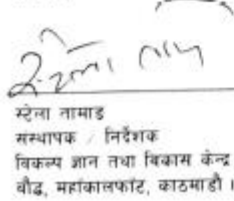 स्टेला तामाङ
संस्थापक / निर्देशक
विकल्प ज्ञान तथा विकास केन्द्र
बौद्ध, महांकालफाँट, काठमाडौं ।